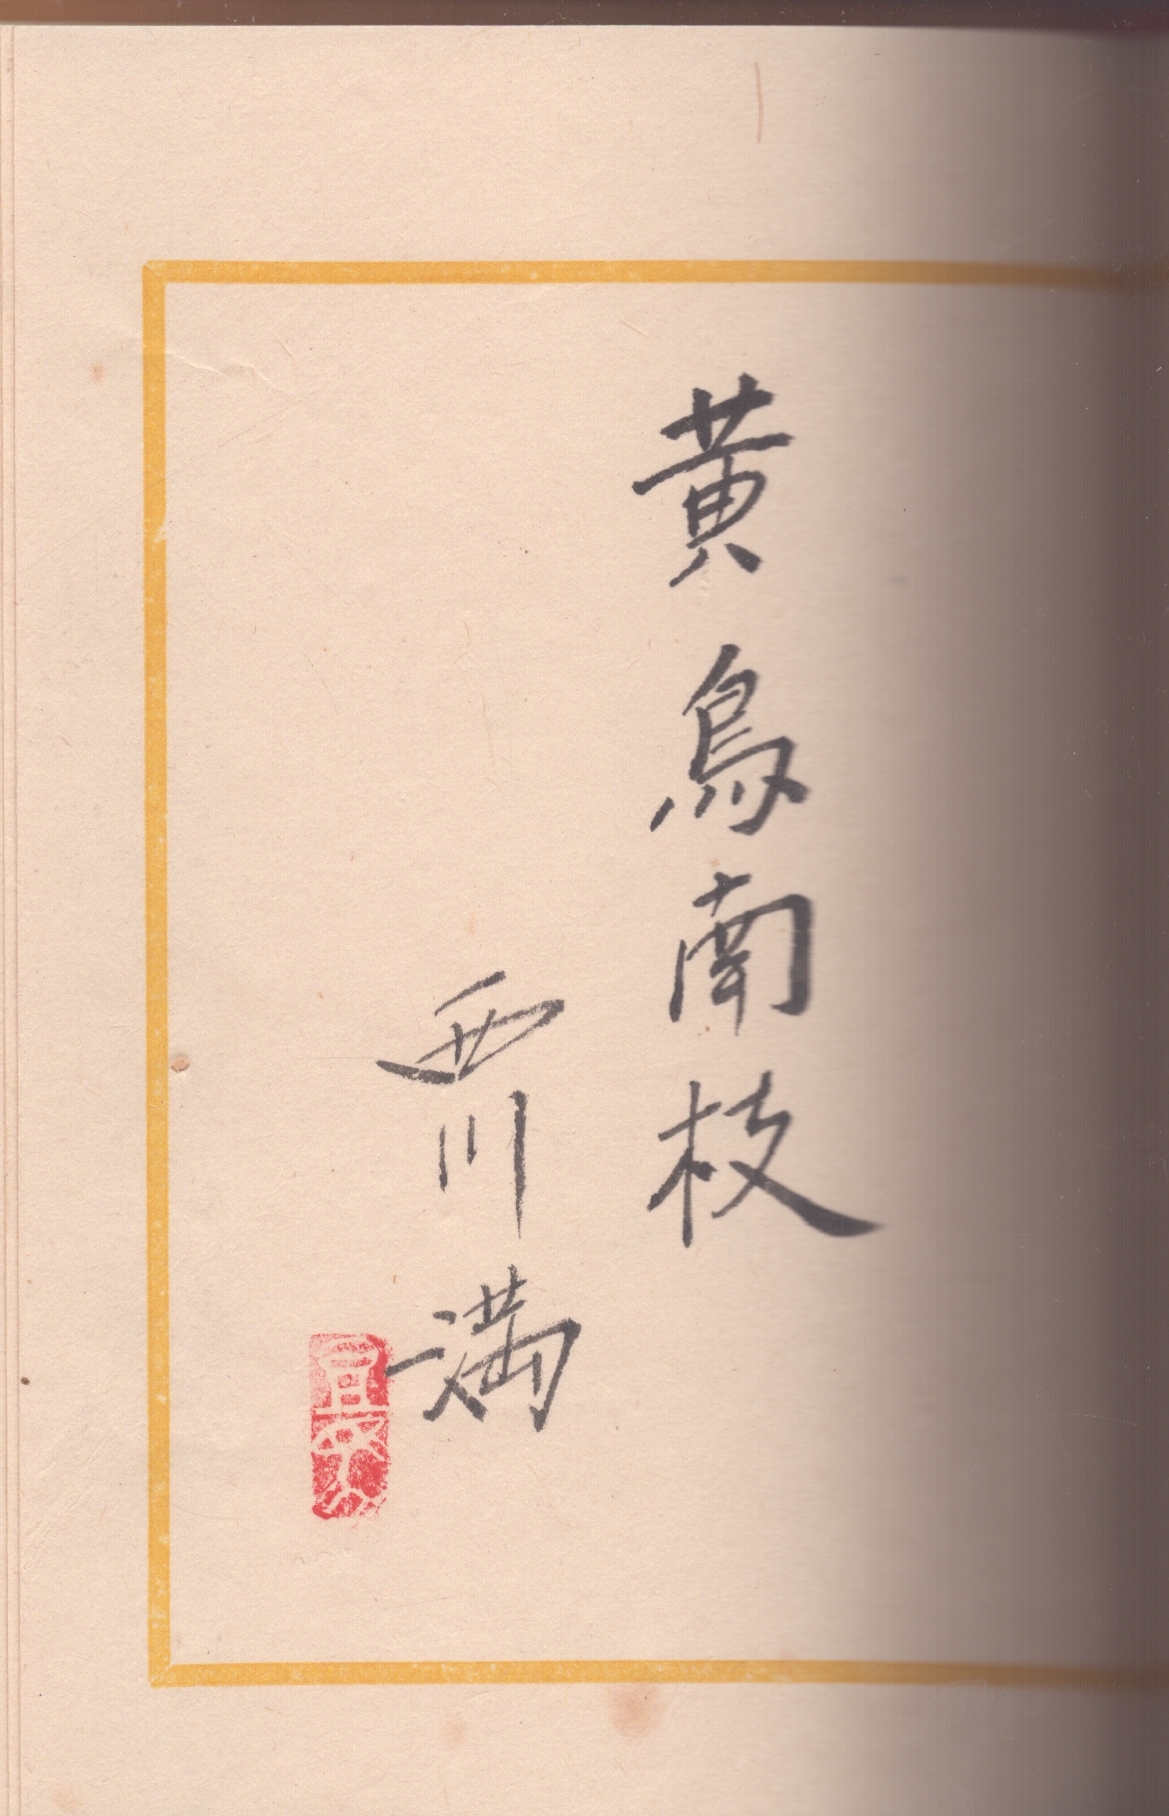 黄鳥南枝
西川満